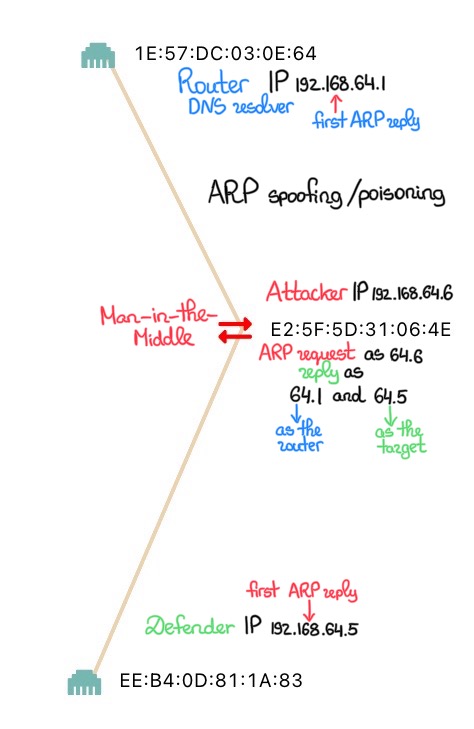 1E:57:DC:03:0E:64
Router IP 192.168.64.1
DNS resolver
first ARP reply
ARP spoofing/poisoning
Attacker IP 192.168.64.6
Man-in-the-
Middle
E2:5F:5D:31:06:4E
ARP request as 64.6
reply as
64.1 and 64.5
as the
router
as the
target
first ARP reply
Defender IP 192.168.64.5
EE:B4:0D:81:1A:83